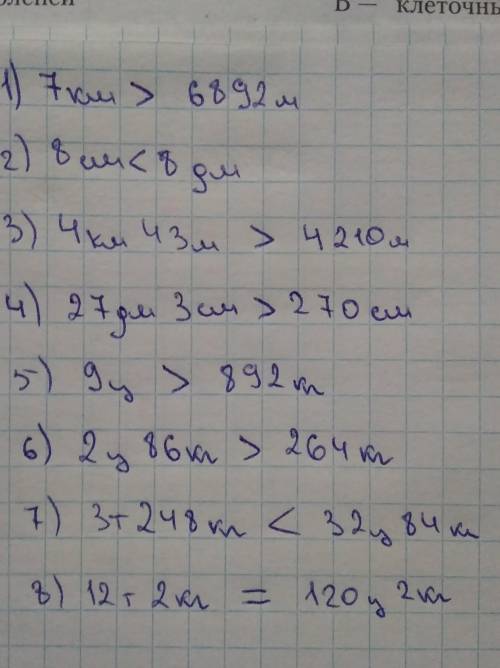 В — клеточны
1) 7км > 6892м
2) 8см < 8дм
3) 4км 43м > 4210м
4) 27дм 3см > 270см
5) 9ц > 892кг
6) 2ц 86кг > 264кг
7) 3т 248кг < 32ц 84кг
8) 12т 2кг = 120ц 2кг